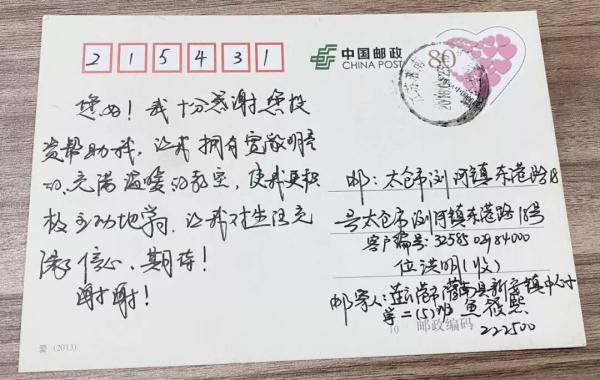 215431
中国邮政
CHINA POST
80
您好！我十分感谢您投
资帮助我，让我拥有宽敞明亮
的、充满温暖的教室，使我更积
极主动地学习，让我对生活充
满了信心、期待！
谢谢！
邮：太仓市浏河镇东港路18
号太仓市浏河镇东港路18号
客户编号：32585021184000
位洪明（收）
邮寄人：连云港市灌南县新安镇中心小
学二（5）班
邮政编码
222500
爱 (2013)